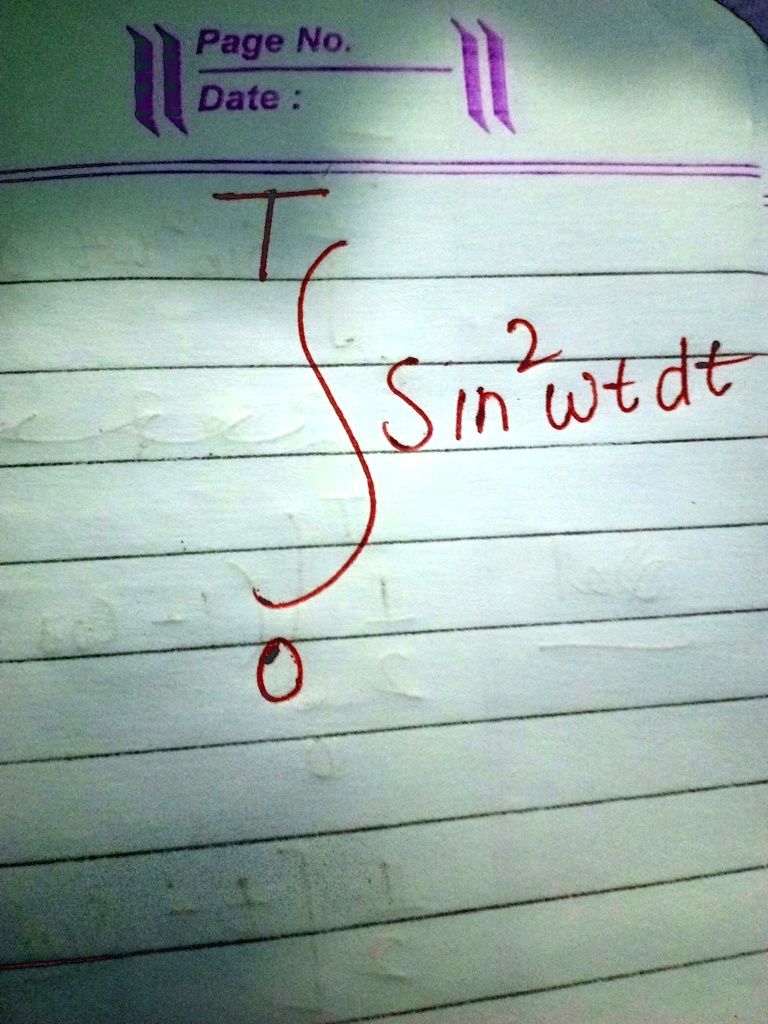 Page No.
Date :
T
∫ Sin²ωt dt
0